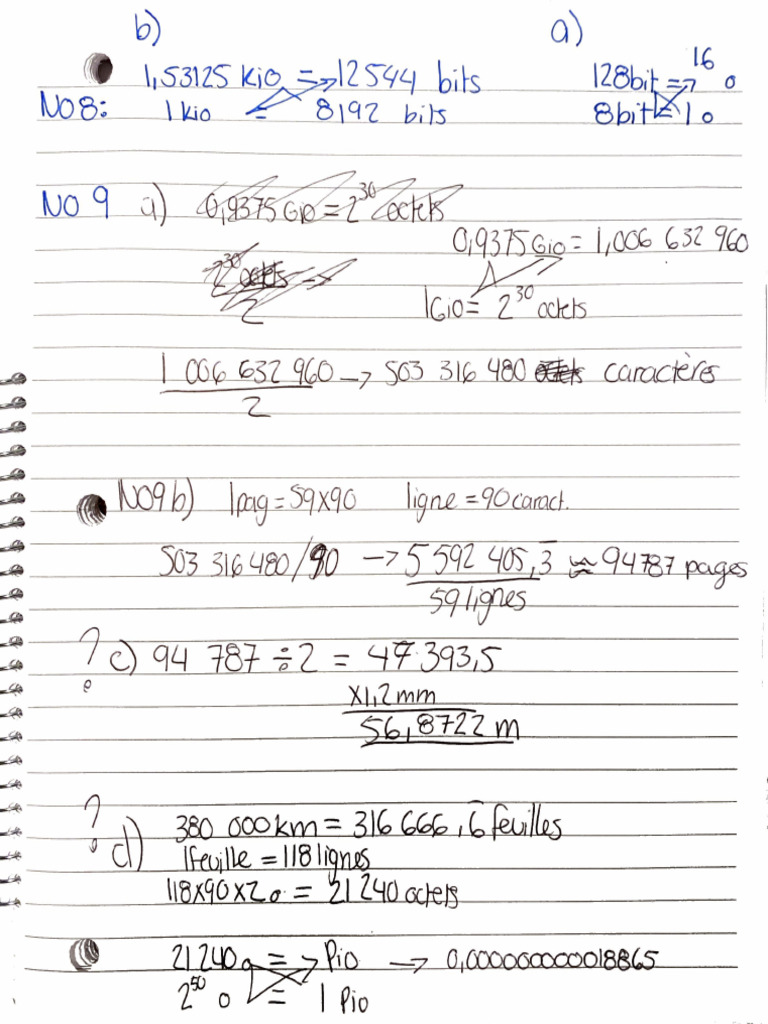 b) a)
1,53125 Kio => 12544 bits 128bit => 16 o
NO8: 1 Kio = 8192 bits 8bit = 1 o
NO 9 a) 0,9375 Gio = 2^30 octets
0,9375 Gio = 1,006 632 960
2^30 octets →
2
1Gio = 2^30 octets
1 006 632 960 → 503 316 480 octets caractères
2
NO9 b) 1pag = 59x90 ligne = 90 caract.
503 316 480/90 → 5 592 405,3̅ ≈ 94787 pages
59 lignes
? c) 94 787 ÷ 2 = 47 393,5
x1,2 mm
56,8722 m
? d) 380 000 km = 316 666,6̅ feuilles
1 feuille = 118 lignes
118x90x2 o = 21 240 octets
21 240 o => Pio → 0,000000000018865
2^50 o = 1 Pio